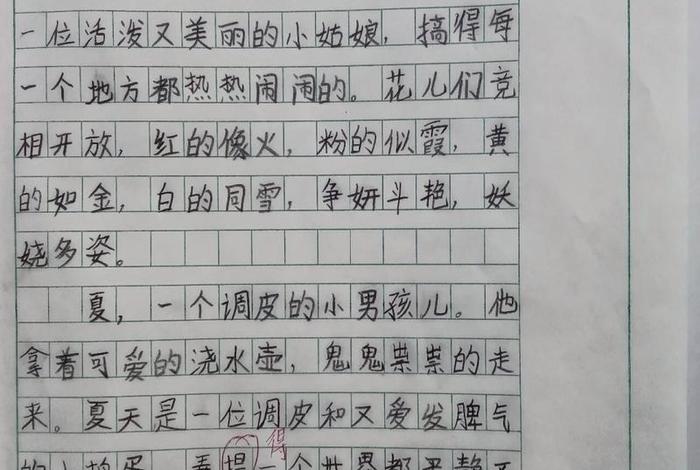 一位活泼又美丽的小姑娘，搞得每
一个地方都热热闹闹的。花儿们竞
相开放，红的像火，粉的似霞，黄
的如金，白的同雪，争妍斗艳，妖
娆多姿。
夏，一个调皮的小男孩儿。他
拿着可爱的浇水壶，鬼鬼祟祟的走
来。夏天是一位调皮和又爱发脾气
得
的小 一个世界都平静